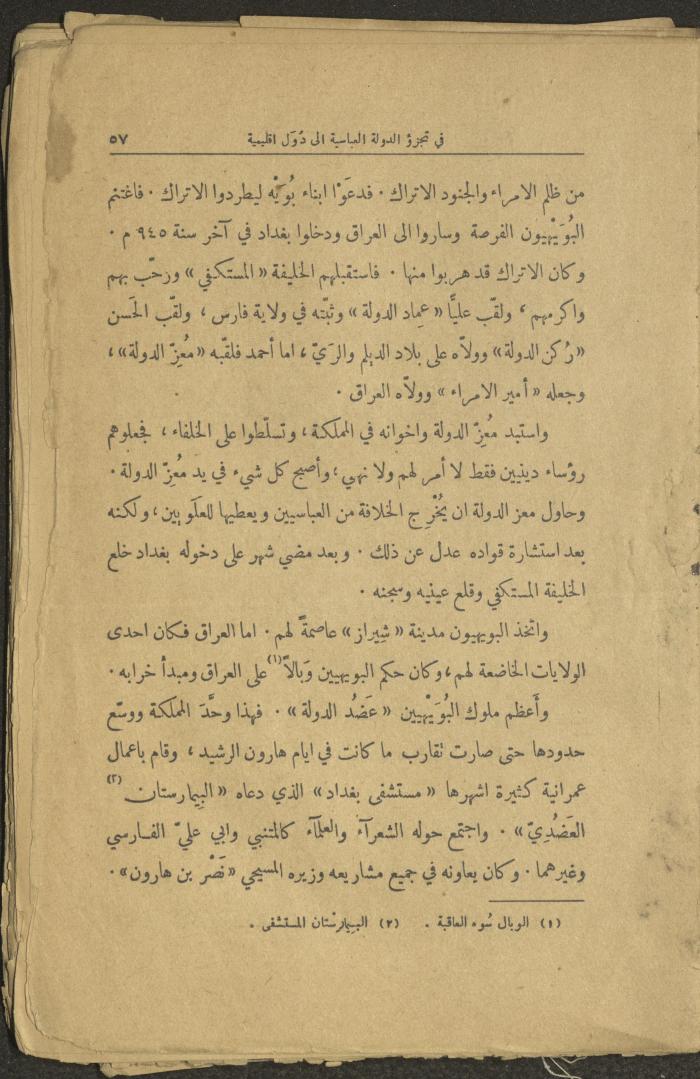 في تجزؤ الدولة العباسية الى دُوَل اقليمية ٥٧
من ظلم الامراء والجنود الاتراك . فدعَوْا ابناء بُوَيْه ليطردوا الاتراك . فاغتنم
البُوَيْهيون الفرصة وساروا الى العراق ودخلوا بغداد في آخر سنة ٩٤٥ م .
وكان الاتراك قد هربوا منها . فاستقبلهم الخليفة « المستكفي » ورحّب بهم
واكرمهم ، ولقّب عليًّا « عِماد الدولة » وثبَّته في ولاية فارس ، ولقّب الحَسن
«رُكن الدولة» وولاّه على بلاد الديلم والرَيّ ، اما أحمد فلقّبه «مُعِزّ الدولة» ،
وجعله « أمير الامراء » وولاّه العراق .
واستبد مُعِزّ الدولة واخوانه في المملكة ، وتسلّطوا على الخلفاء ، فجعلوهم
رؤساء دينيين فقط لا أمر لهم ولا نهي ، وأصبح كل شيء في يد مُعِزّ الدولة .
وحاول معز الدولة ان يُخْرِج الخلافة من العباسيين ويعطيها للعلَويين ، ولكنه
بعد استشارة قواده عدل عن ذلك . وبعد مضي شهر على دخوله بغداد خلع
الخليفة المستكفي وقلع عينيه وسجنه .
واتخذ البويهيون مدينة « شِيراز » عاصمةً لهم . اما العراق فكان احدى
الولايات الخاضعة لهم ، وكان حكم البويهيين وَبالاً(١) على العراق ومبدأ خرابه .
وأَعظم ملوك البُوَيْهيين « عَضُد الدولة » . فهذا وحَّدَ المملكة ووسّع
حدودها حتى صارت تقارب ما كانت في ايام هارون الرشيد ، وقام باعمال
عمرانية كثيرة اشهرها « مستشفى بغداد » الذي دعاه « البِيمارستان (٢)
العَضُديّ » . واجتمع حوله الشعرآء والعلمآء كالمتنبي وابي عليّ الفارسي
وغيرهما . وكان يعاونه في جميع مشاريعه وزيره المسيحي «نَصْر بن هارون» .
(١) الوبال سُوء العاقبة . (٢) البيمارسْتان المستشفى .